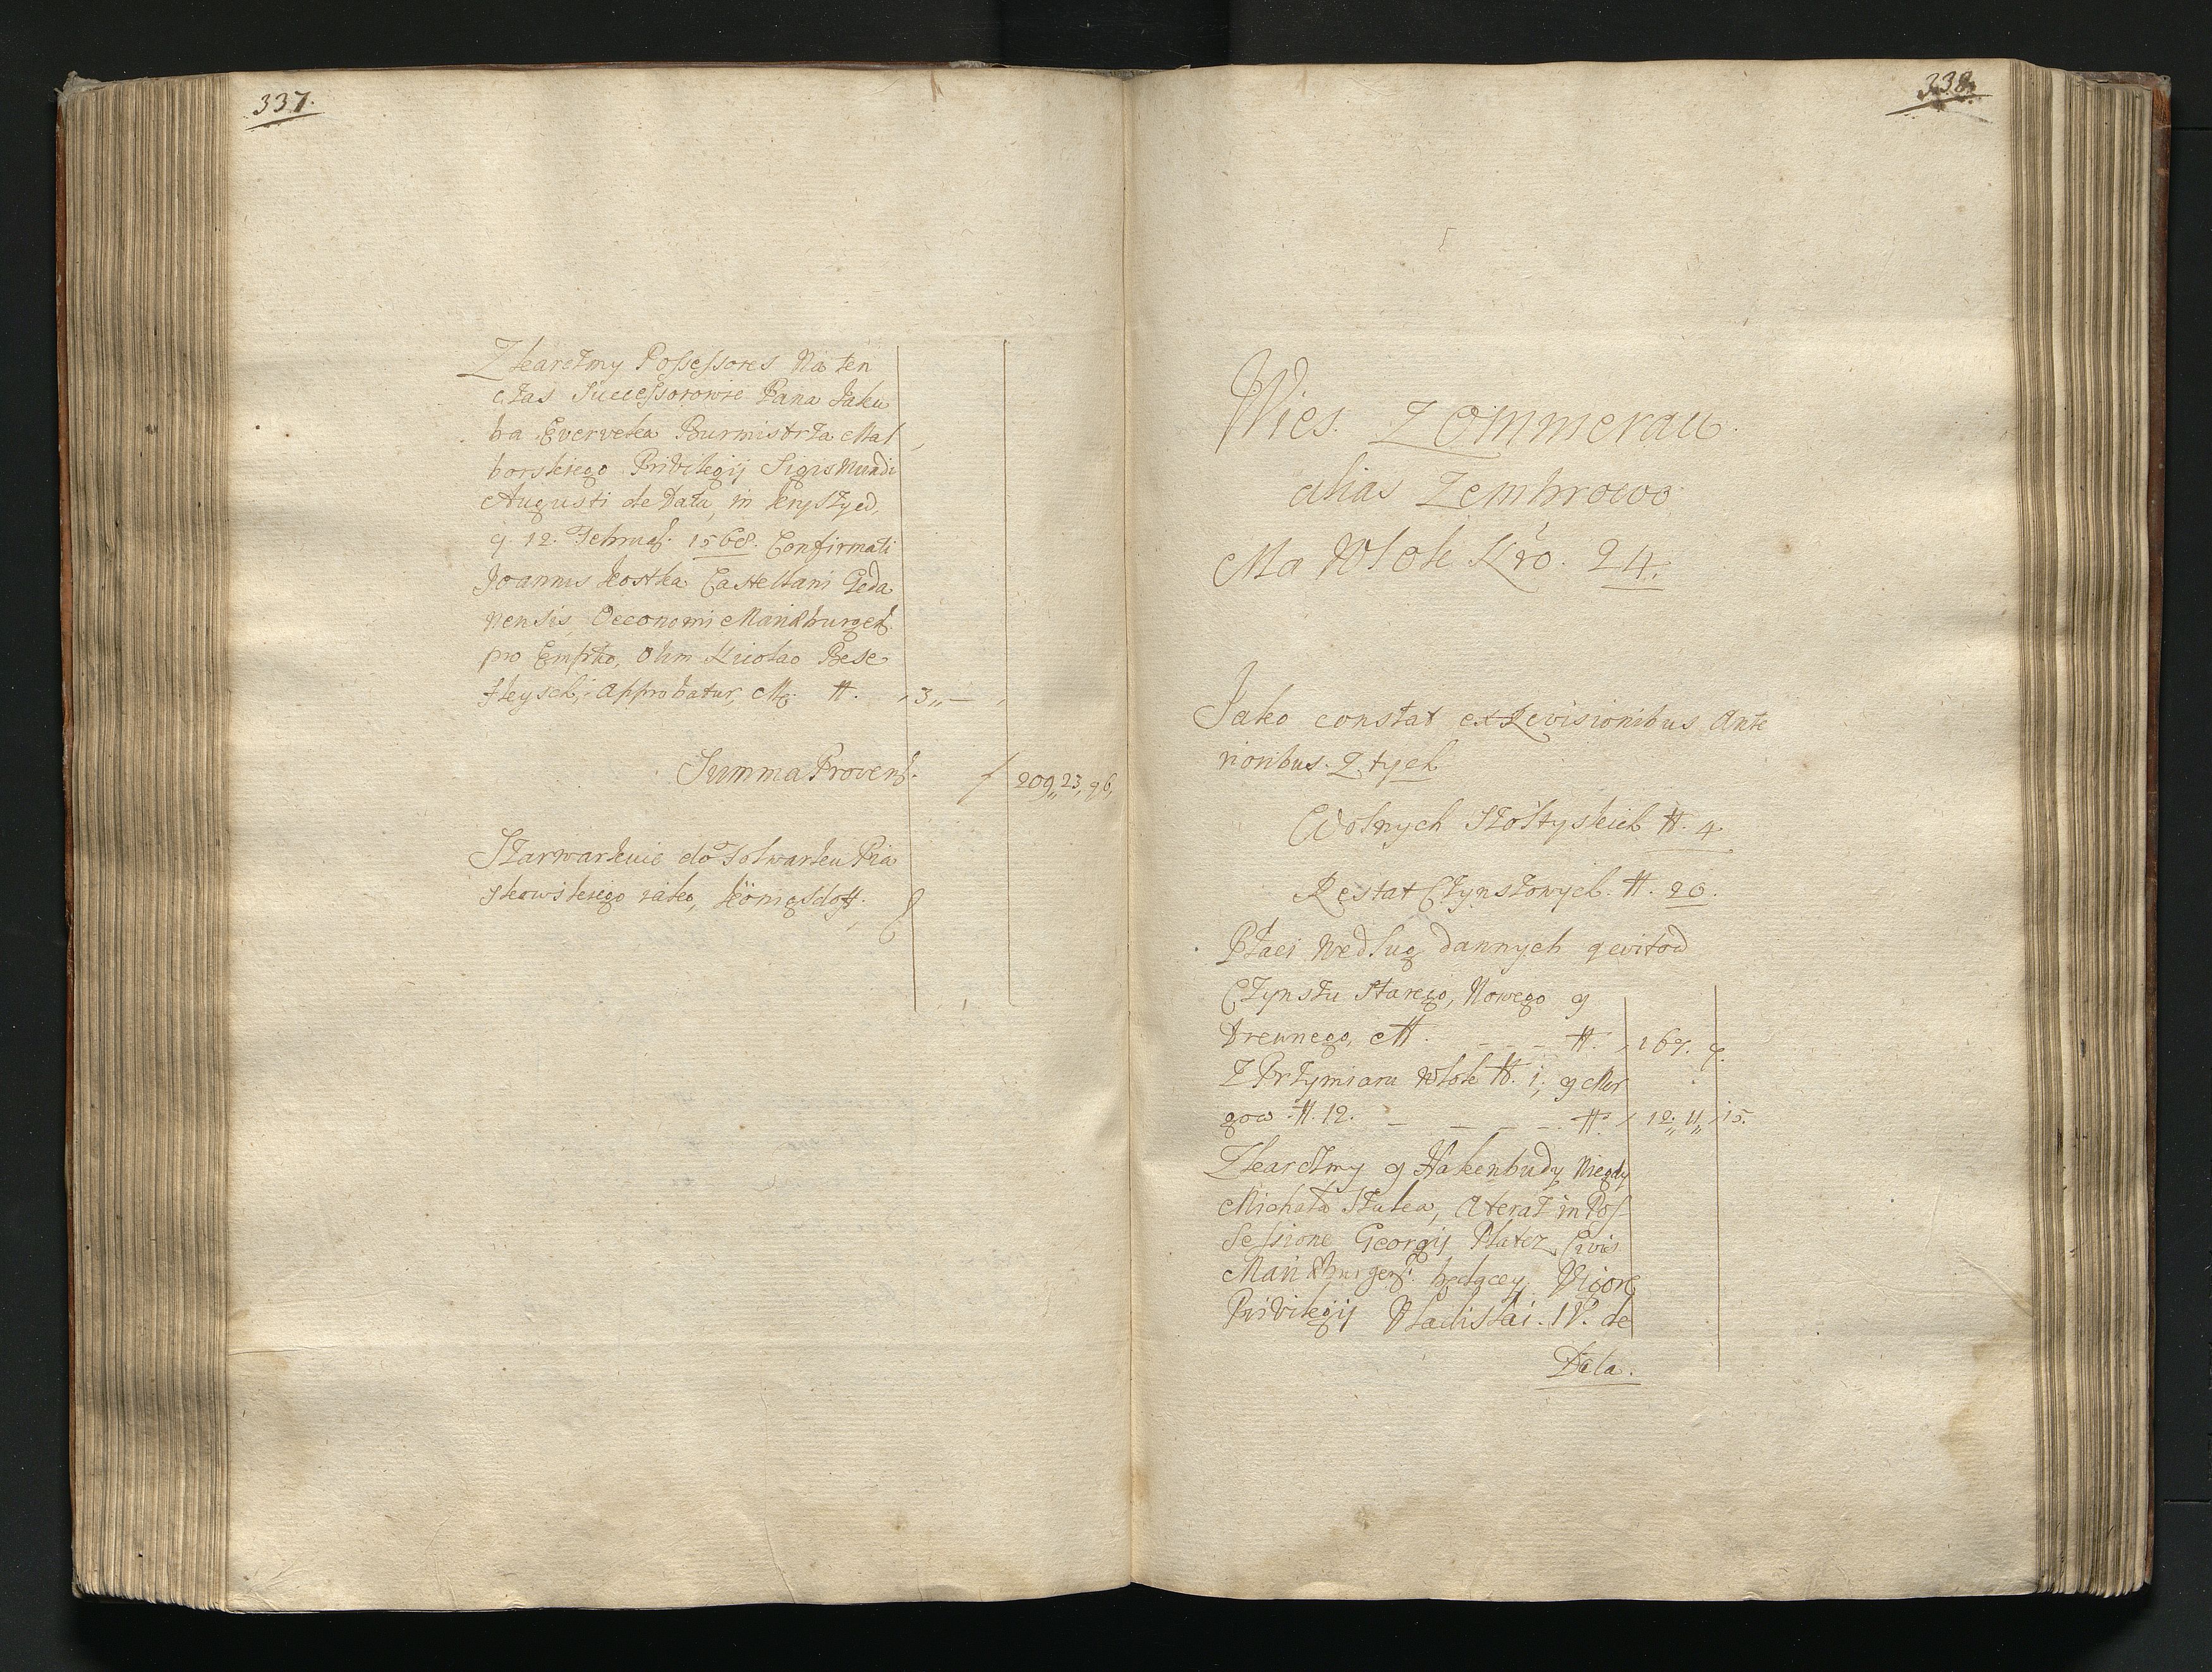 337.
Z karczmy Possessores Na ten
czas Successorowie Pana Jaku
ba Everveka Burmistrza Mal
borskiego Privilegij Sigismundi
Augusti de Data, in Knyszyed,
q. 12. Februaÿ. 1568. Confirmati
Joannis Kostka Castellani Geda
nensis, Oeconomi Marÿburgeÿ.
pro Empto, olim Nicolao Bese
fleysch, Approbatur, M. #. 3 „ —
Summa Provenÿ. f 209 „ 23, 96,
Szarwarkuie do Folwarku Pia
skowskiego iako, Königsdoff.
338.
Wies. Zommerau.
alias Zembrowo
Ma Wlok Nro. 24.
Jako constat ex Revisionibus Ante
rioribus. Z tych
Wolnych Szoltyskich #. 4
Restat Czynszowych. #. 20.
Płaci według dannych qvitow
Czynszu Starego, Nowego y
Drewnego, M. - - - #. 167. 9.
Z Przymiaru Wlok #. 1, y Mor
gow #. 12. - - - - #. 12 „ 11 „ 15.
Z karczmy y Hakenbudy niegdy
Michała Szulca, a teraz in Pos
sessione Georgij Platez, Civis
Mariÿburgenÿ. będącey Vigore
Privilegij Vladislai. IV. de
Data.